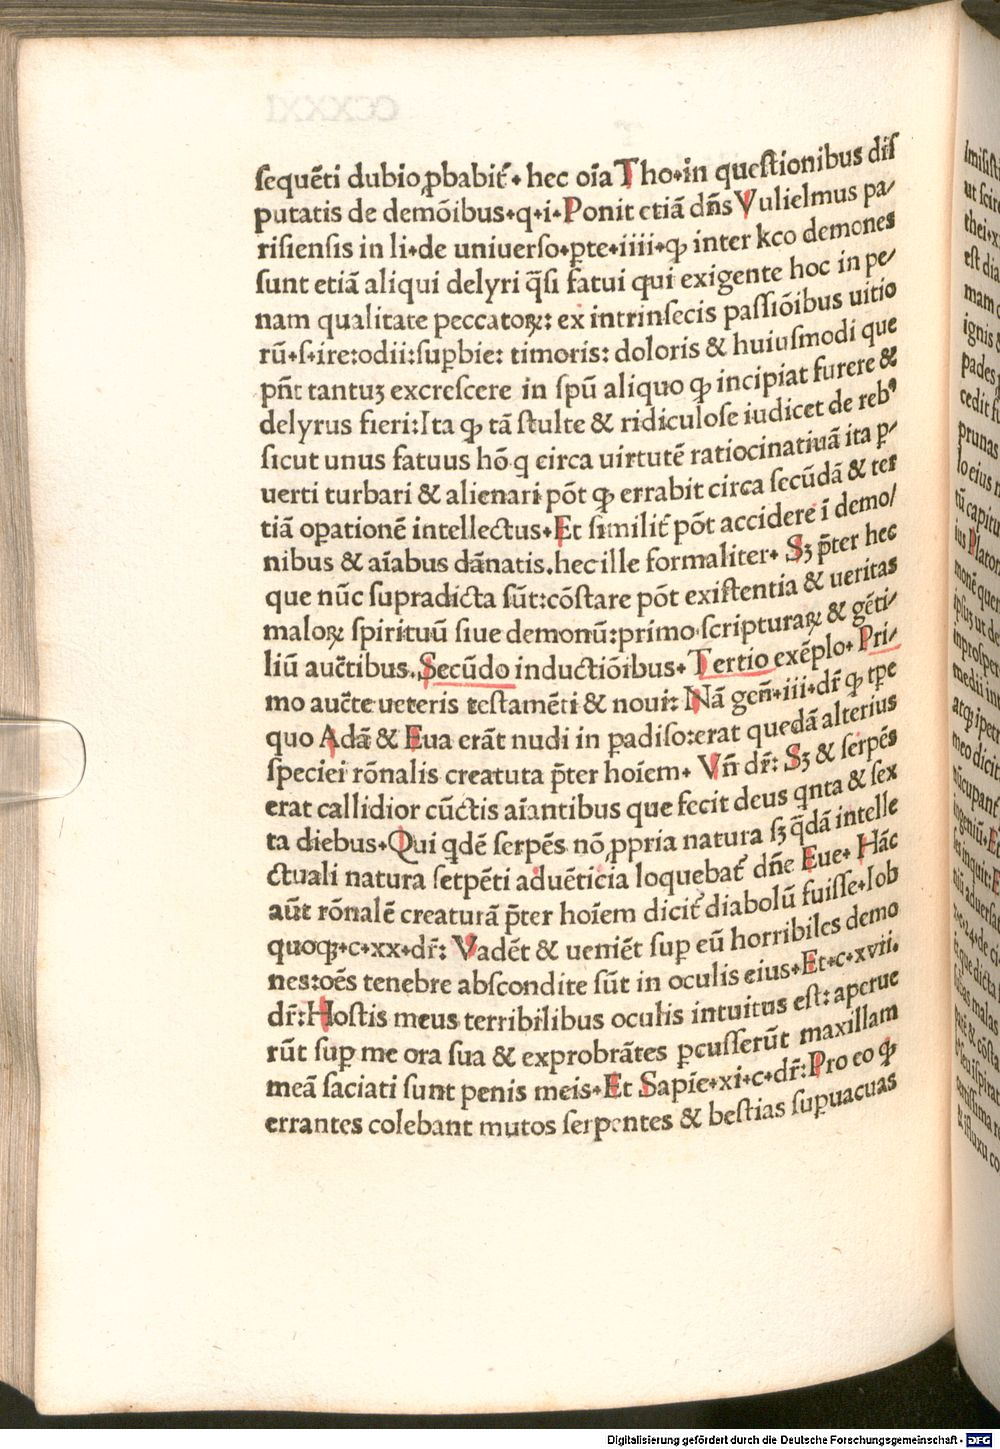 sequēti dubio ꝓbabit᷑. hec oīa Tho. in questionibus dis
putatis de demōibus. q. i. Ponit etiā dn̄s Vulielmus pa/
risiensis in li. de uniuerso. ꝑte. iiii. ꝙ inter kco demones
sunt etiā aliqui delyri q̄si fatui qui exigente hoc in pe/
nam qualitate peccatoꝝ: ex intrinsecis passiōibus uitio
rū. s. ire: odii: suꝑbie: timoris: doloris & huiusmodi que
pn̄t tantuꝫ excrescere in spū aliquo ꝙ incipiat furere &
delyrus fieri: Ita ꝙ tā stulte & ridiculose iudicet de rebꝰ
sicut unus fatuus hō q̨ circa uirtutē ratiocinatiuā ita ꝑ/
uerti turbari & alienari pōt ꝙ errabit circa secūdā & ter
tiā oꝑationē intellectus. Et similit᷑ pōt accidere ī demo/
nibus & aīabus dānatis. hec ille formaliter. Sꝫ p̄ter hec
que nūc supradicta sūt: cōstare pōt existentia & ueritas
maloꝝ spirituū siue demonū: primo scripturaꝝ & gēti/
liū auct̄ibus. Secūdo inductiōibus. Tertio exēplo. Pri/
mo auct̄e ueteris testamēti & noui: Nā gen̄. iii. dr̄ ꝙ tꝑe
quo Adā & Eua erāt nudi in ꝑadiso: erat quedā alterius
speciei rōnalis creatuta p̄ter hoīem. Vn̄ dr̄: Sꝫ & serpēs
erat callidior cūctis aīantibus que fecit deus q̨nta & sex
ta diebus. Qui q̨dē serpēs nō ꝓpria natura sꝫ q̄dā intelle
ctuali natura setpēti aduēticia loquebat᷑ dn̄e Eue. Hāc
aūt rōnalē creaturā p̄ter hoīem dicit᷑ diabolū fuisse. Iob
quoqꝫ. c. xx. dr̄: Vadēt & ueniēt suꝑ eū horribiles demo
nes: oēs tenebre abscondite sūt in oculis eius. Et. c. xvii.
dr̄: Hostis meus terribilibus oculis intuitus est: aperue
rūt suꝑ me ora sua & exprobrātes ꝑcusserūt maxillam
meā saciati sunt penis meis. Et Sapīe. xi. c. dr̄: Pro eo ꝙ
errantes colebant mutos serpentes & bestias suꝑuacuas
Digitalisierung gefördert durch die Deutsche Forschungsgemeinschaft - DFG